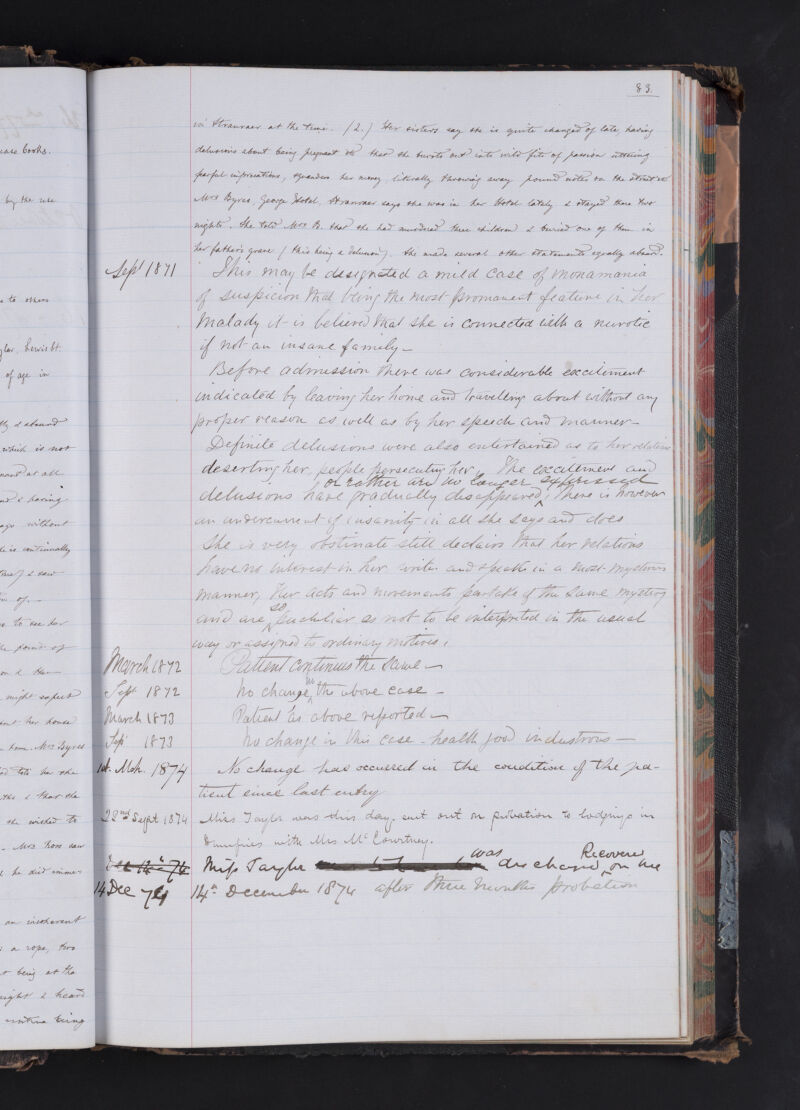 83.
in Stranraer at the time. (2.) Her sisters say she is quite changed of late, having
delusions about being pregnant & that she bursts out into wild fits of passion uttering
fearful imprecations, squanders her money, literally throwing away pound notes on the street &c
Mrs Byres, George Hotel, Stranraer says she was in her Hotel lately & stayed there two
nights. She told Mrs B. that she had murdered three children & buried one of them in
her father's grave (this being a delusion). She made several other statements equally absurd.
Sept 1871 This may be designated a mild case of monamania
of suspicion that being the most promanent feature in her
malady it is believed that she is connected with a nurotic
if not an insane family—
Before admission there was considerable excitement
indicated by leaving her home and travelling about without any
proper reason as well as by her speech and manner—
Definite delusions were also entertained as to her relations
deserting her, people persecuting her, The excitement and
or rather are no longer expressed
delusions have gradually disappeared, there is however
an undercurrent of insanity in all she says and does
She is very obstinate still declairs that her relations
have no interest in her writes and speaks in a most mysterious
manner, Her acts and movements partake of the same mystery
and are so puculiar as not to be interpreted in the usual
way or assigned to ordinary motives.
March 1872 Patient continues the same—
Sept 1872 No change in the above case—
March 1873 Patient as above reported—
Sep 1873 No change in this case health good industrous—
1st Mch. 1874 No change has occurred in the condition of the pa-
tient since last entry
22nd Sept 1874 Miss Taylor was this day sent out on probation to lodgings in
Dumfries with Mrs McCourtney.
Miss Taylor was discharged Recovered on the
14 Dec 74 14th December 1874 after three months probation
ance books.
by the use
e to others
of age in
which is not
& having
ago without
continually
I saw
to see her
might expect
her house
Mrs Byres
told her she
& that she
she wished to
Mrs Ross saw
he did
an incoherent
a rope, two
being at the
night I heard
being